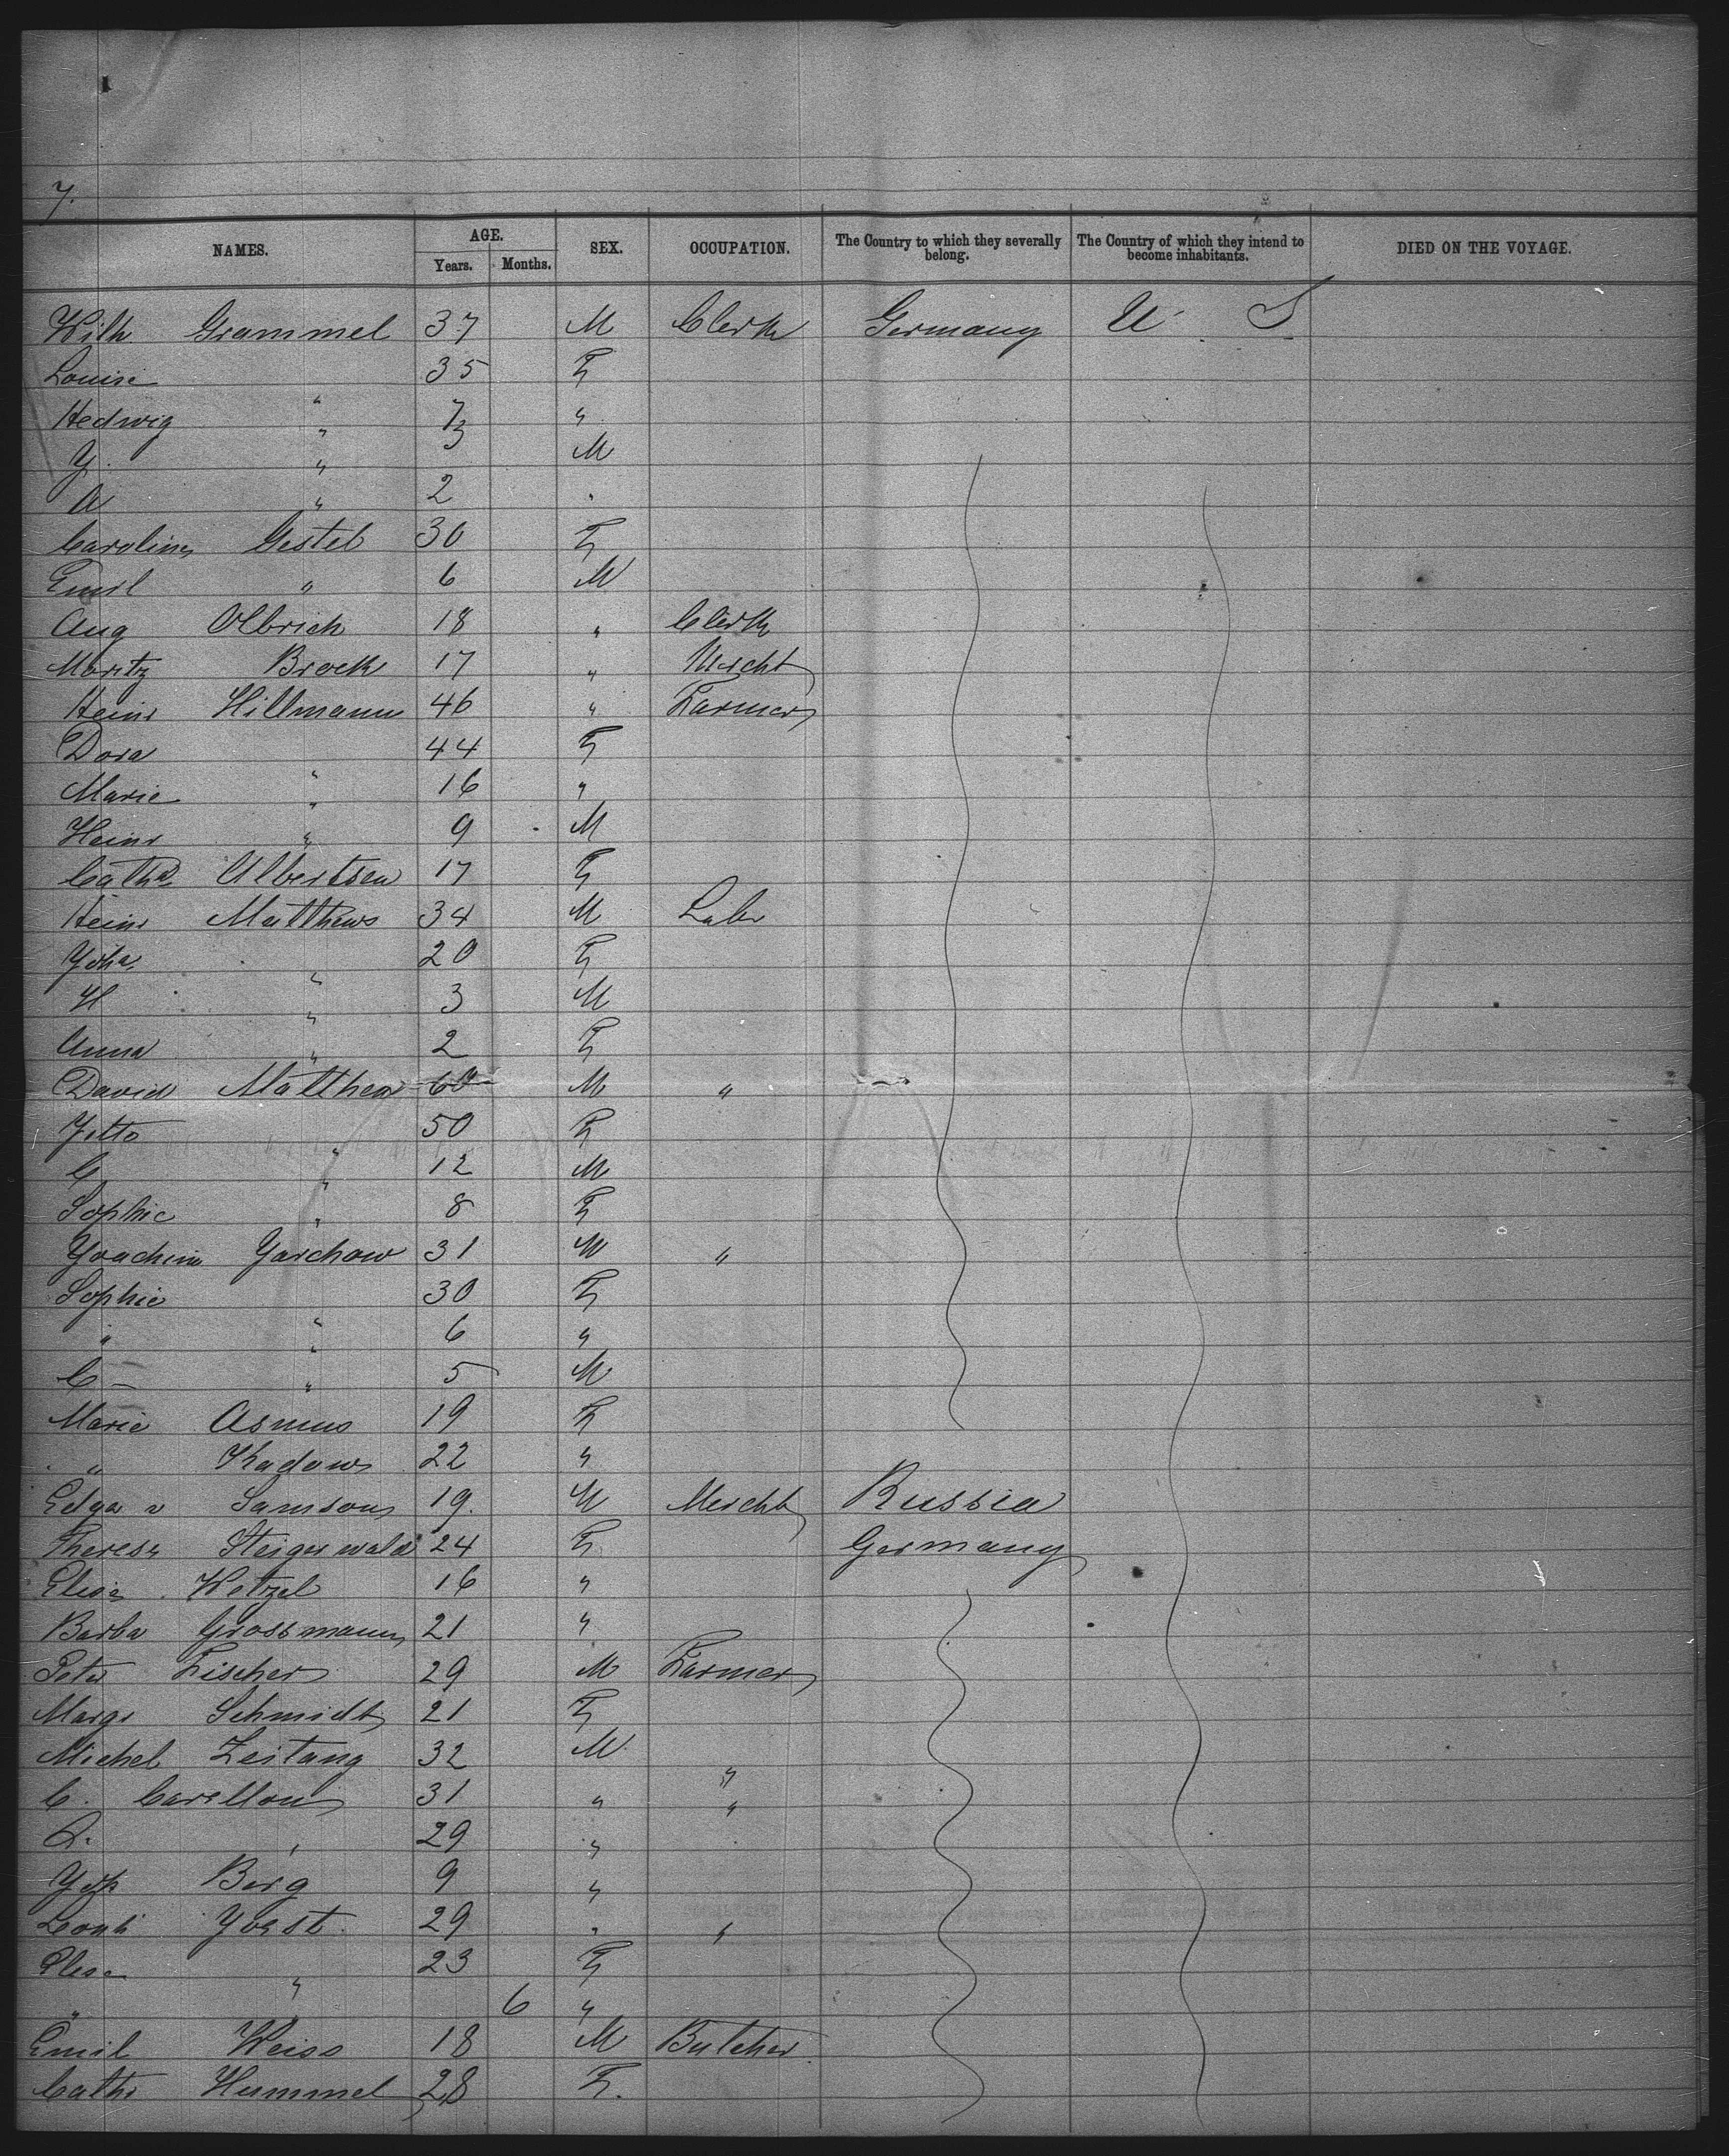 7.
NAMES. AGE. Years. Months. SEX. OCCUPATION. The Country to which they severally belong. The Country of which they intend to become inhabitants. DIED ON THE VOYAGE.
Wilh Grammel 37 M Clerk Germany U S
Louise " 35 F
Hedwig " 7 "
J. " 3 M
A " 2 "
Caroline Gestel 30 F
Emil " 6 M
Aug Olbrich 18 " Clerk
Moritz Brock 17 " Mercht
Heinr Hillmann 46 " Farmer
Dora " 44 F
Marie " 16 "
Heinr " 9 M
Cathe Albertsen 17 F
Heinr Matthews 34 M Labr
Joha " 20 F
H " 3 M
Anna " 2 F
David Matthew 60 M "
Jetto " 50 F
C " 12 M
Sophie " 8 F
Joachim Jarchow 31 M "
Sophie " 30 F
" " 6 "
C " 5 M
Marie Asmus 19 F
" Kadow 22 "
Edga v Samson 19. M Mercht Russia
Therese Steigerwald 24 F Germany
Elise Wetzel 16 "
Barba Grossmann 21 "
Peter Fischer 29 M Farmer
Margr Schmidt 21 F
Michel Zeitang 32 M "
C. Carellon 31 " "
" 29 "
Jos Berg 9 "
Jorst 29 " "
Elise " 23 F
" " 6 "
Emil Weiss 18 M Butcher
Cathr Hummel 28 F.